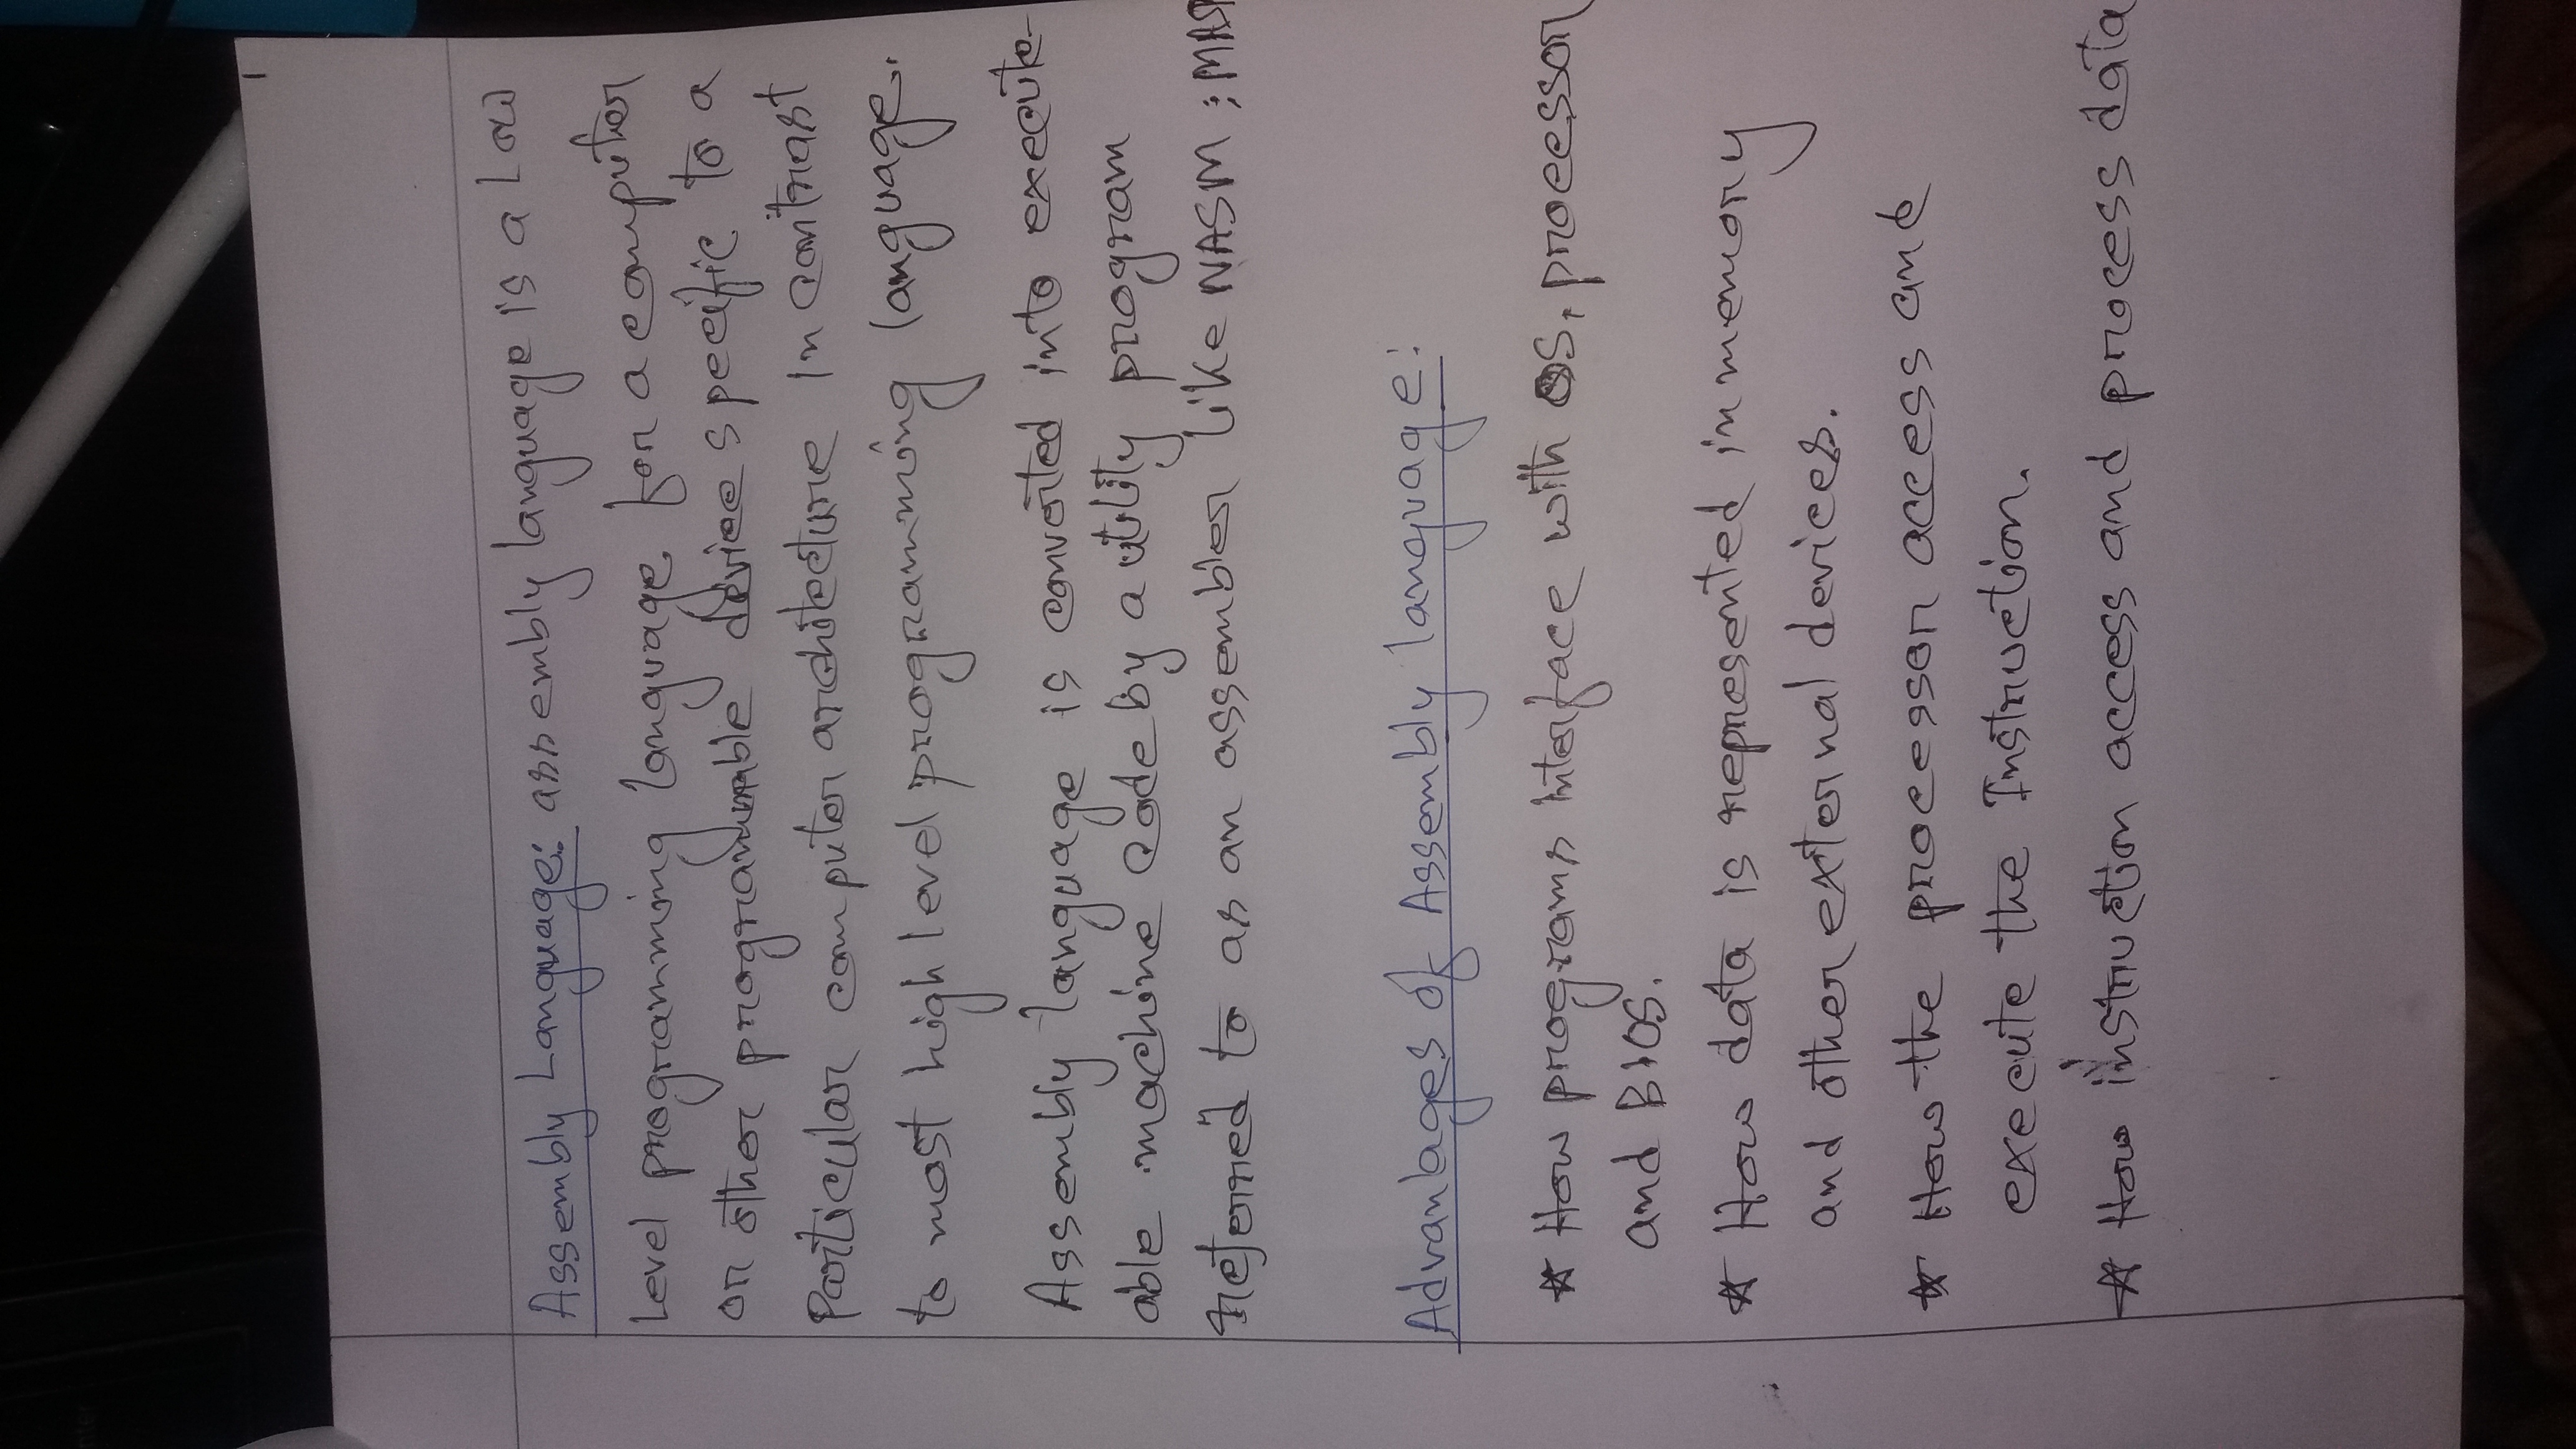 1
Assembly Language: assembly language is a Low
Level programming language for a computer
or other programmable device specific to a
Particular computer architecture In contrast
to most high level programming language.
Assembly language is converted into execute-
able machine code by a utility program
referred to as an assembler like NASM ; MASM
Advantages of Assembly language:
* How programs Interface with OS, processor
and BIOS.
* How data is represented in memory
and other external devices.
* How the processor access and
execute the Instruction.
* How instruction access and process data